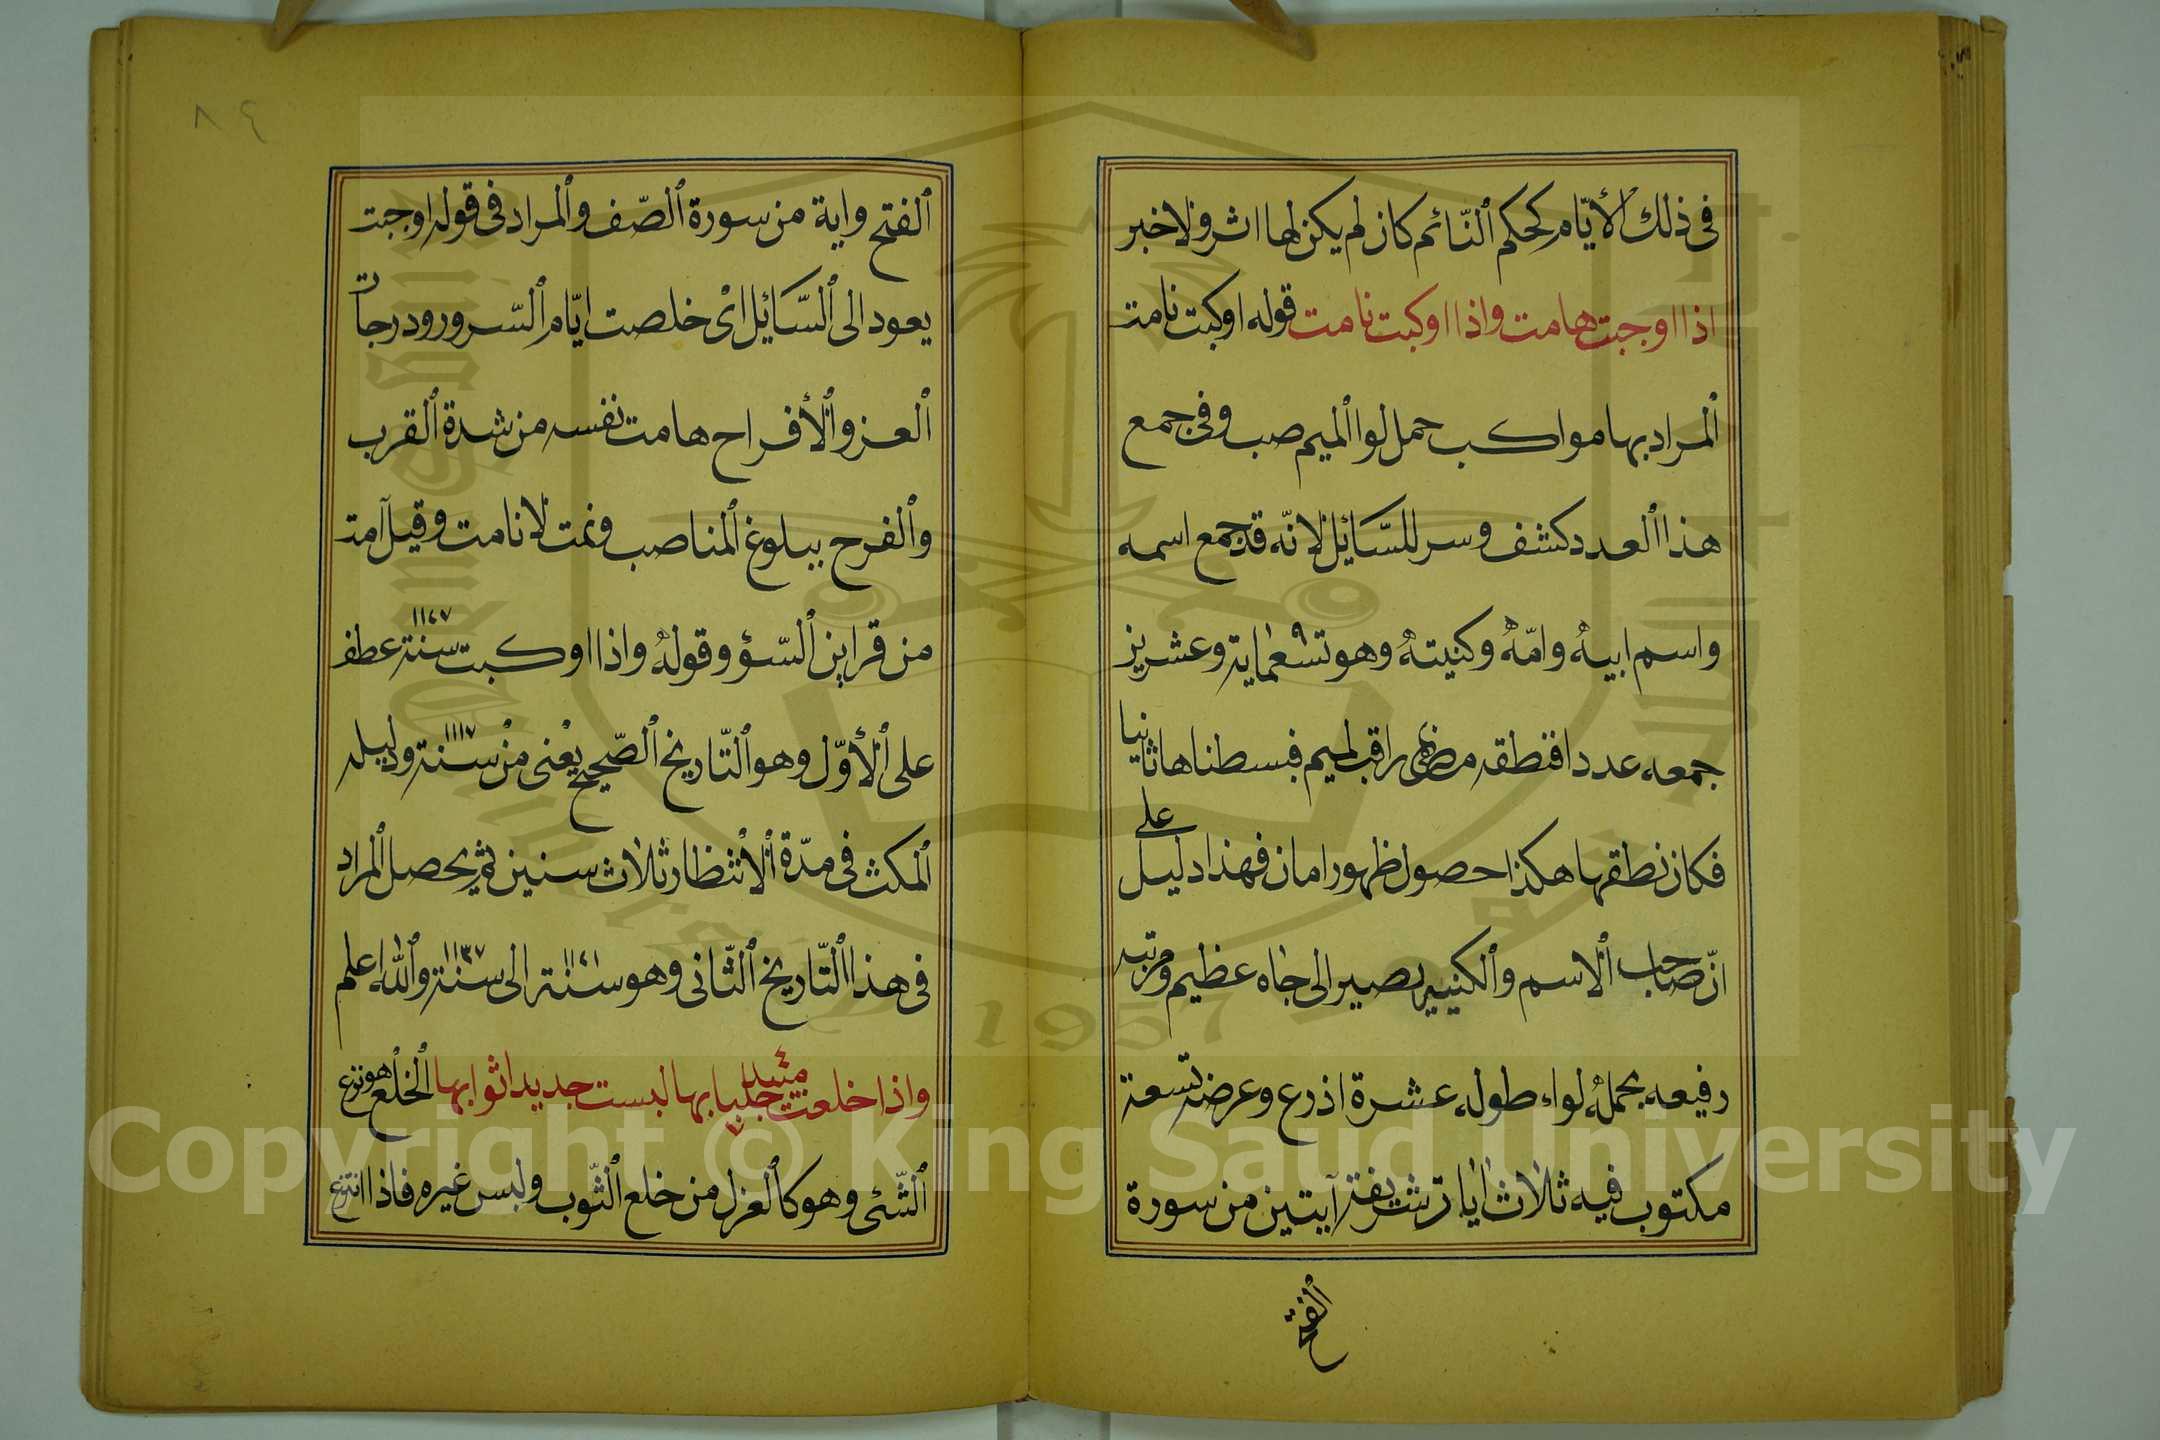 فى ذلك الأيّام كحكم ٱلنّائم كان لم يكن لها اثر ولا خبر
اذا اوجبت هامت واذا اوكبت نامت قوله اوكبت نامت
ٱلمراد بها مواكب حمل لوا ٱلميم صب وفى جمع
هذا ٱلعدد كشف وسر للسّائل لانّه قد جمع اسمه
واسم ابيهُ وامّهُ وكنيتهُ وهو تسعمايه وعشرين
جمعه عددا فنطقه مراقب لميم فبسطناها ثانيا
فكان نطقها هكذا حصول ظهور امان فهذا دليل
على
انّ صاحب ٱلاسم وٱلكنيه يصير الى جاه عظيم ومرتبه
رفيعه بحملهُ لواء طوله عشرة اذرع وعرضه تسعة
مكتوب فيه ثلاث ايات شريفة آيتين من سورة
ٱلفتح
٨٤
ٱلفتح واية من سورة ٱلصّف وٱلمراد فى قوله اوجبت
يعود الى ٱلسّائل اىْ خلصت ايّام ٱلسّرور ودرجات
ٱلعز وٱلأفراح هامت نفسه من شدة ٱلقرب
وٱلفرح ببلوغ ٱلمناصب ونمت لانامت وقيل آمت
من قراين ٱلسّؤ وقولهُ واذا اوكبت سنة ١١٤٧ عطف
على ٱلأوّل وهو ٱلتّاريخ ٱلصّحيح يعْنى منْ سنة ١١١٧ ودليله
ٱلمكث فى مدّة ٱلأنتظار ثلاث سنين ثم يحصل ٱلمراد
فى هذا ٱلتّاريخ ٱلثّانى وهو سنة ١١٤١ الى سنة ١١٣٧ وٱللّٰه اعلم
واذا خلعت جلبابها لبست جديد اثوابها ٱلخلع هو نزع
ٱلشّئى وهو كالعزل من خلع ٱلثّوب ولبس غيره فاذا انتزع
Copyright © King Saud University
1957